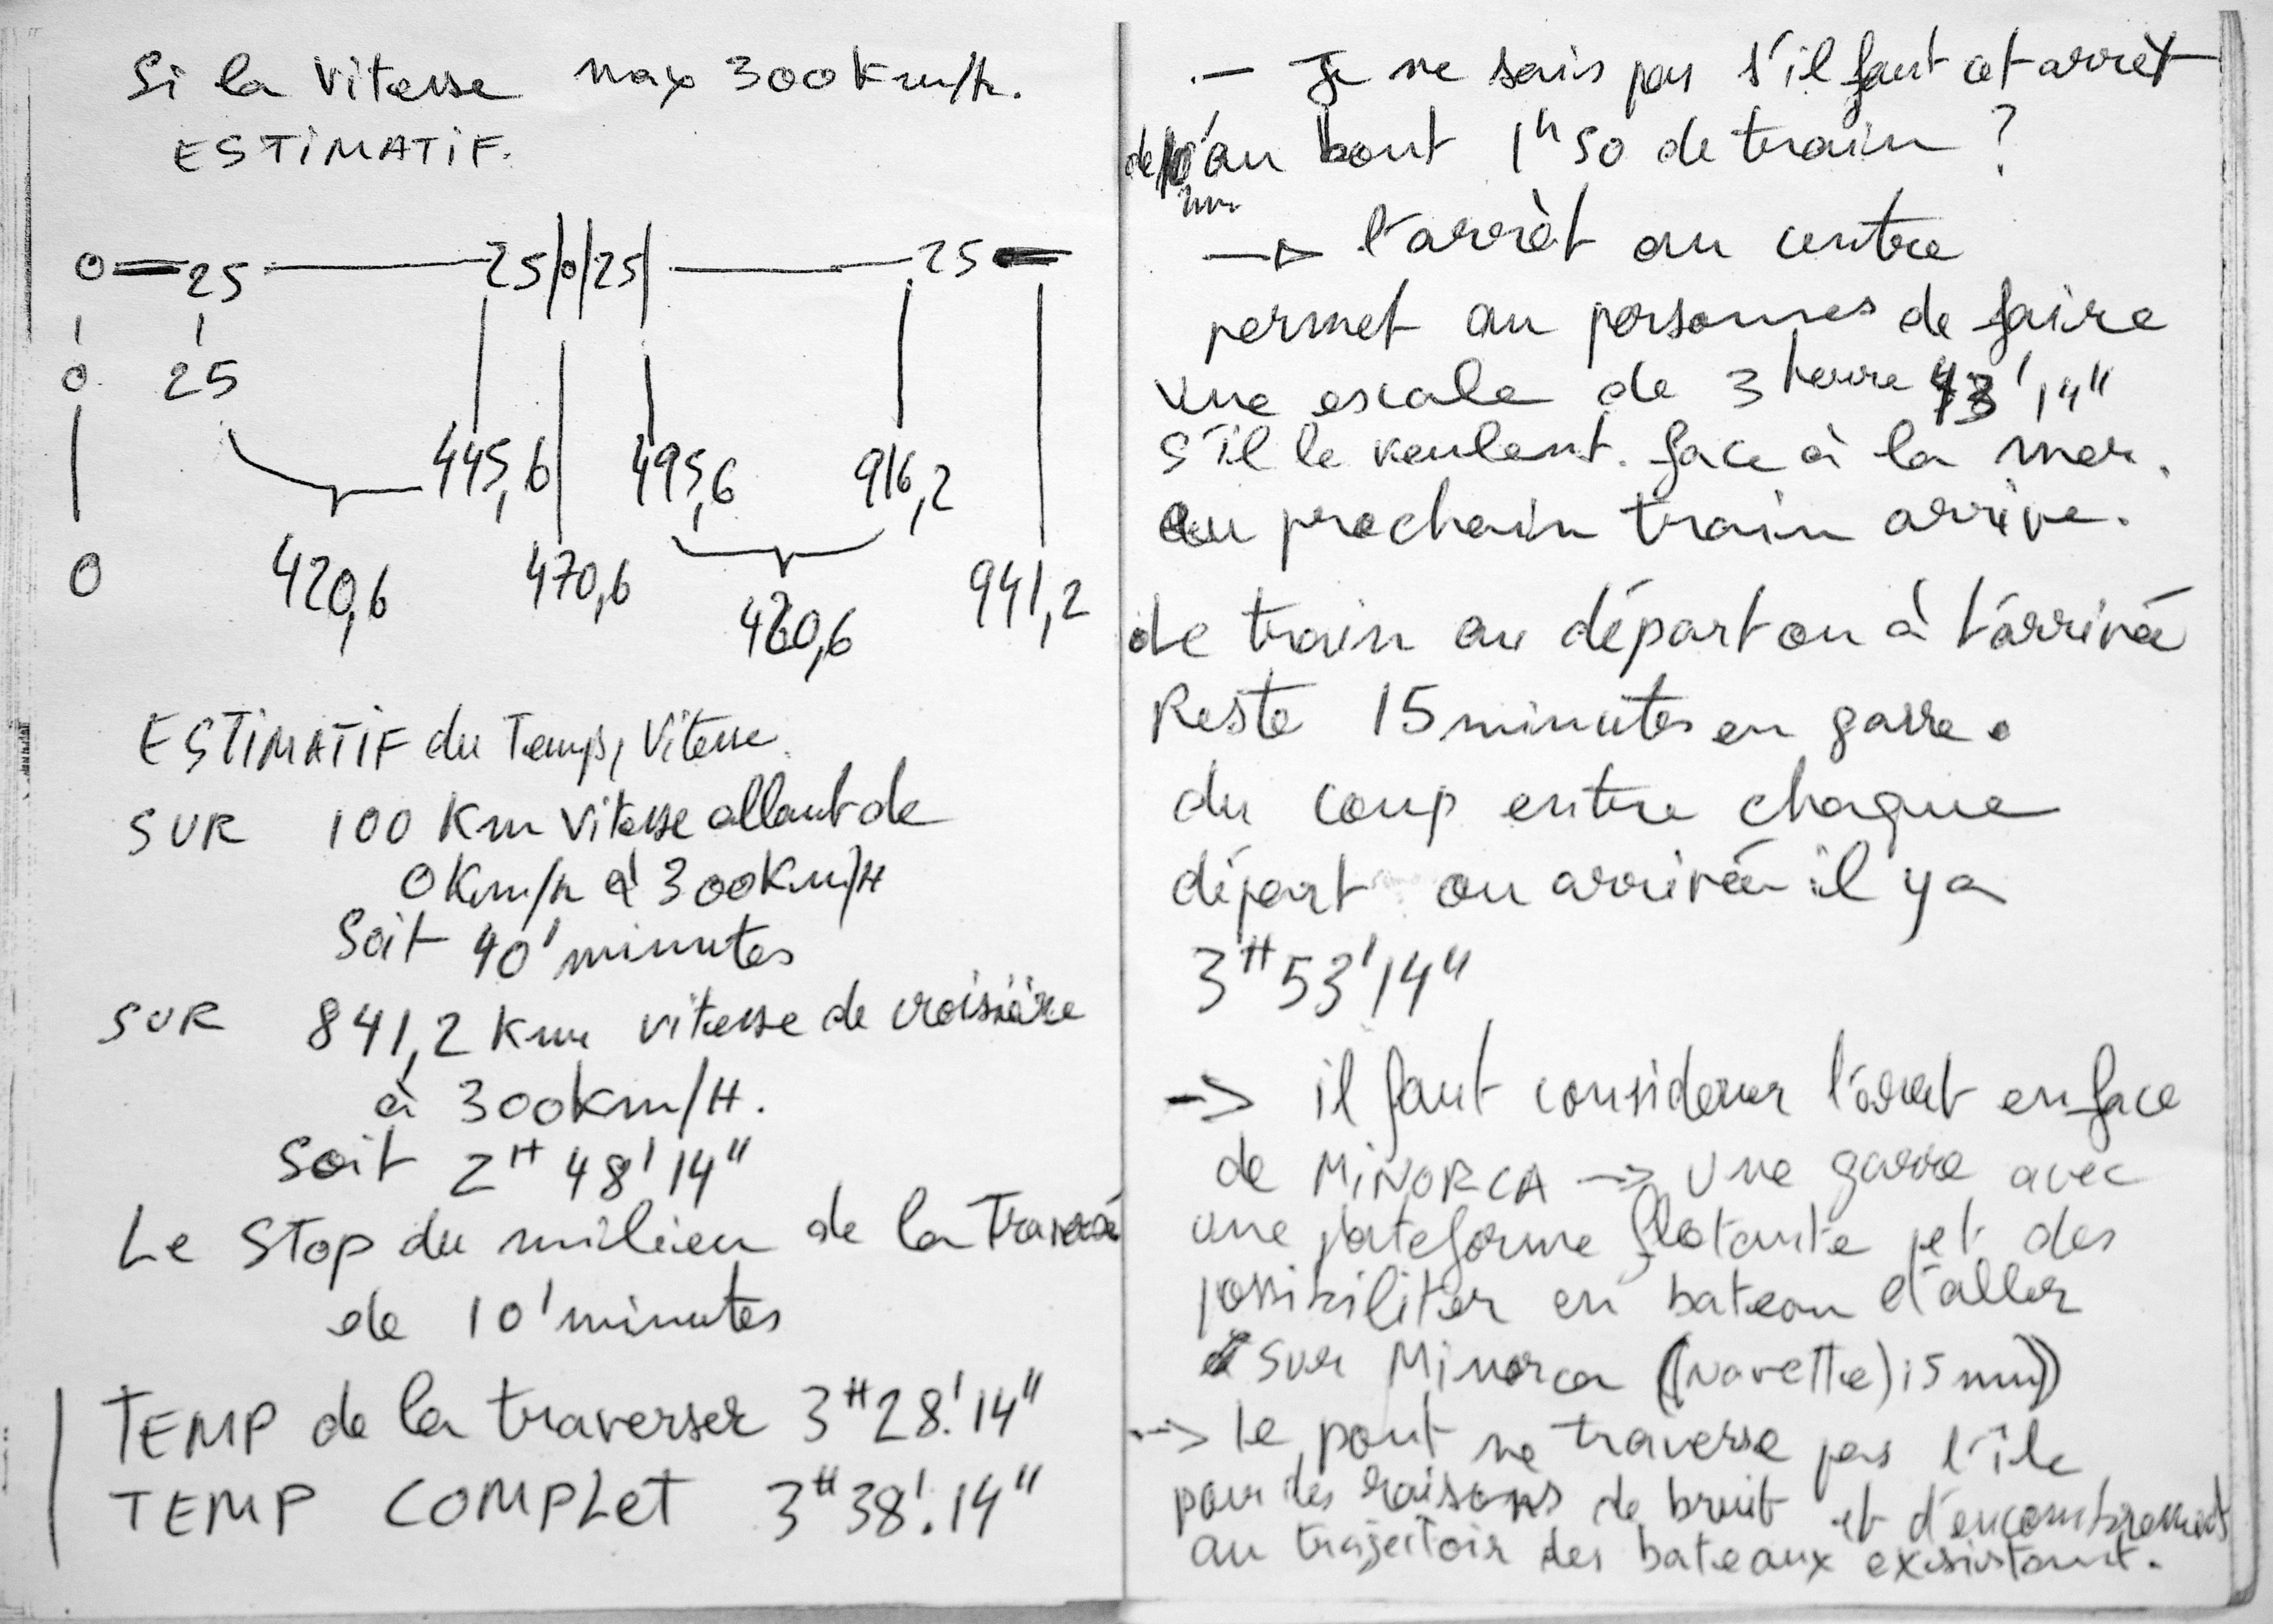 Si la vitesse max 300 Km/h.
ESTIMATIF.
0 25 25 0 25 25
0 25
445,6 495,6 916,2
0 420,6 470,6 420,6 941,2
ESTIMATIF du Temps, Vitesse.
SUR 100 Km vitesse allant de
0Km/h à 300Km/H
Soit 40' minutes
SUR 841,2 Km vitesse de croisière
à 300km/H.
Soit 2H 48' 14"
Le STOP du milieu de la Traversé
de 10' minutes
TEMP de la traverser 3H 28.' 14"
TEMP COMPLET 3H 38'. 14"
- Je ne sais pas s'il faut cet arrêt
de 10' au bout 1h 50 de train ?
mn
→ l'arrêt au centre
permet au personnes de faire
une escale de 3 heure 43' 14"
s'il le veulent. face à la mer.
au prochain train arrive.
Le train au départ ou à l'arrivée
Reste 15 minutes en garre.
du coup entre chaque
départ ou arrivée il y a
3H 53' 14"
-> il faut considerer l'arret en face
de MiNORCA -> Une garre avec
une plateforme flotante et des
possibiliter en bateau d'aller
sur Minorca ((navette) 15 mn))
--> le pont ne traverse pas l'île
pour des raisons de bruit et d'encombrements
au trajectoir des bateaux exisistant.